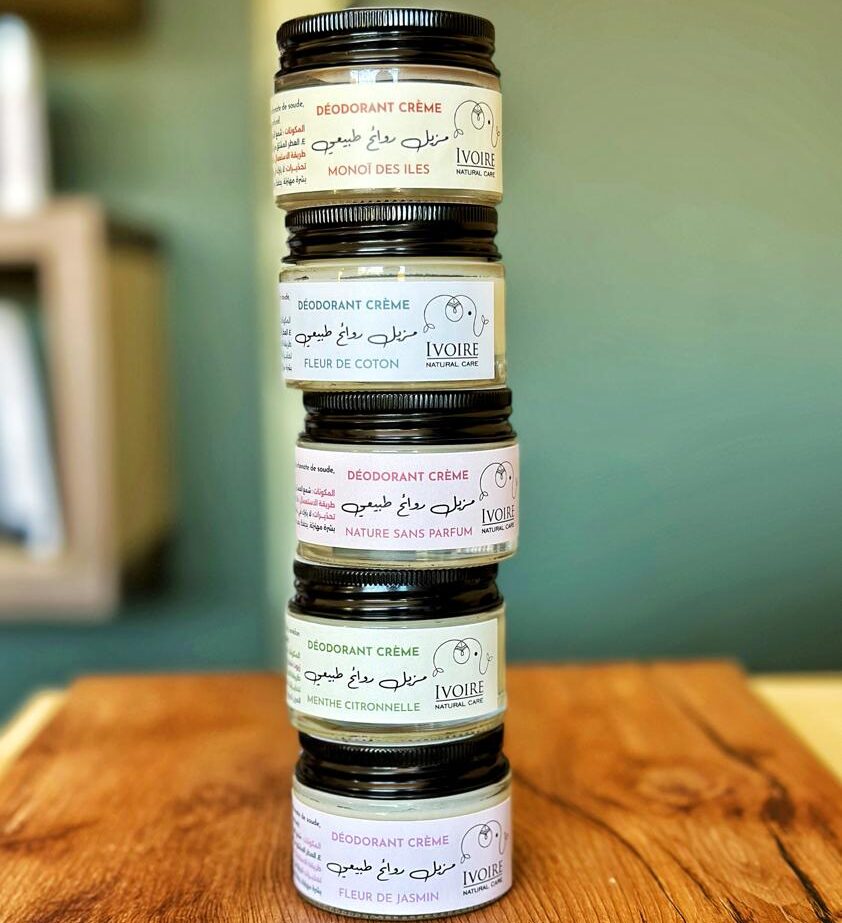 DÉODORANT CRÈME
مزيل روائح طبيعي
MONOÏ DES ILES
IVOIRE
NATURAL CARE
de soude,
المكونات
DÉODORANT CRÈME
مزيل روائح طبيعي
FLEUR DE COTON
IVOIRE
NATURAL CARE
DÉODORANT CRÈME
مزيل روائح طبيعي
NATURE SANS PARFUM
IVOIRE
NATURAL CARE
de soude,
المكونات
طريقة الاستعمال
DÉODORANT CRÈME
مزيل روائح طبيعي
MENTHE CITRONNELLE
IVOIRE
NATURAL CARE
DÉODORANT CRÈME
مزيل روائح طبيعي
FLEUR DE JASMIN
IVOIRE
NATURAL CARE
de soude,